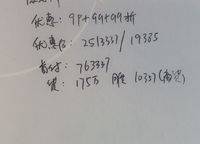 优惠：99+99+99折
优惠后：2513337/19385
首付：763337
贷：175万 月供 10337（商贷）